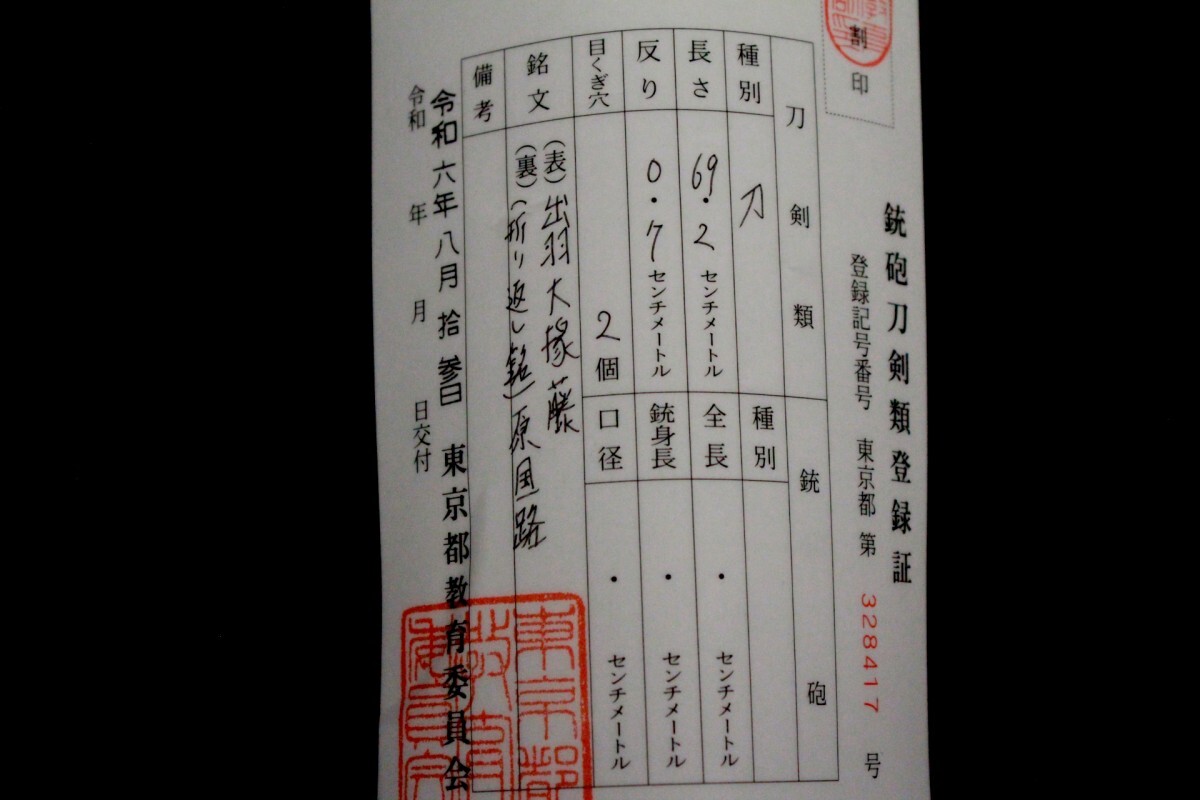 割
印
銃砲刀剣類登録証
登録記号番号 東京都 第 328417 号
刀剣類
銃砲
種別 刀
長さ 69.2 センチメートル
反り 0.7 センチメートル
目くぎ穴 2個
銘文 (表) 出羽大塚藤
(裏) (折り返し銘) 原国路
備考
種別
全長 ・ センチメートル
銃身長 ・ センチメートル
口径 ・ センチメートル
令和六年八月拾参日 東京都教育委員会
令和 年 月 日交付
東京都
教育
委員会